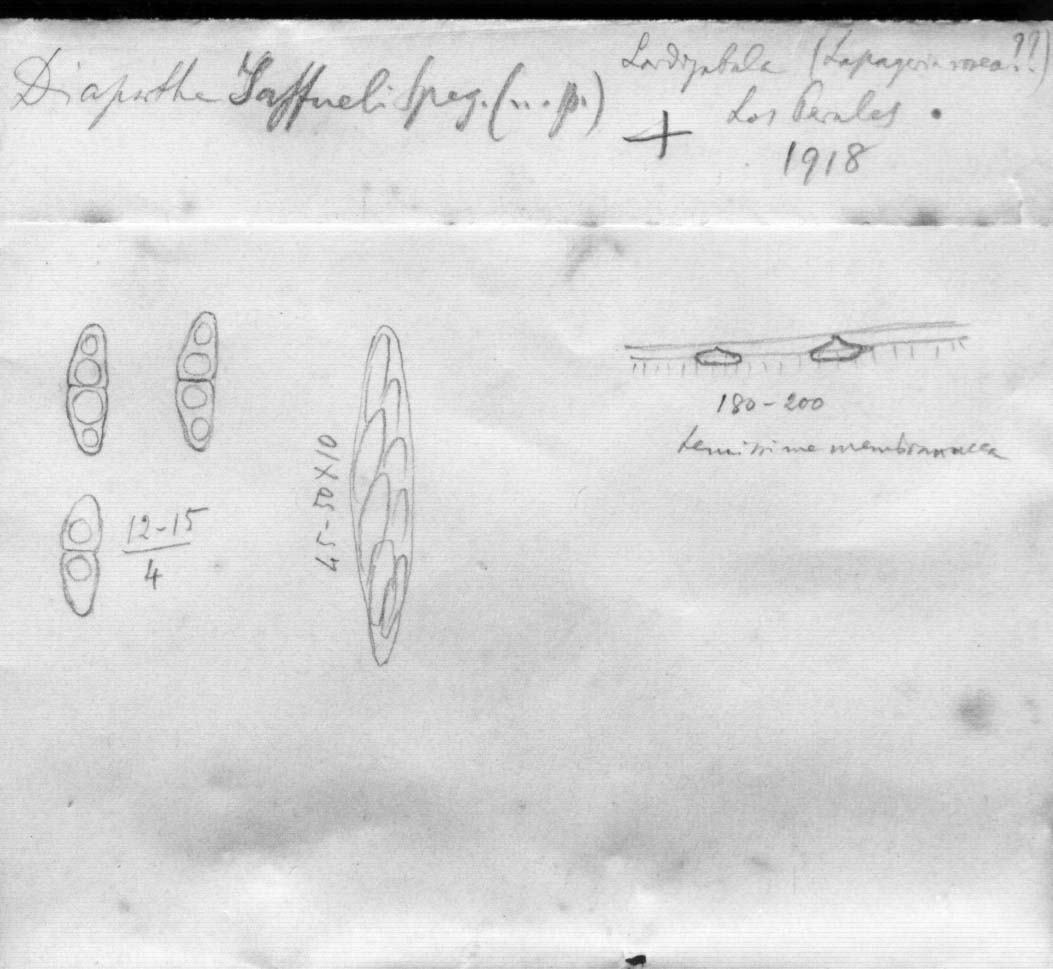 Diaporthe Jaffueli Speg. (n. p.)
Lardizabala (Lapageria rosea??)
+ Los Perales •
1918
180-200
tenuissime membranacea
45-50X10
12-15
4